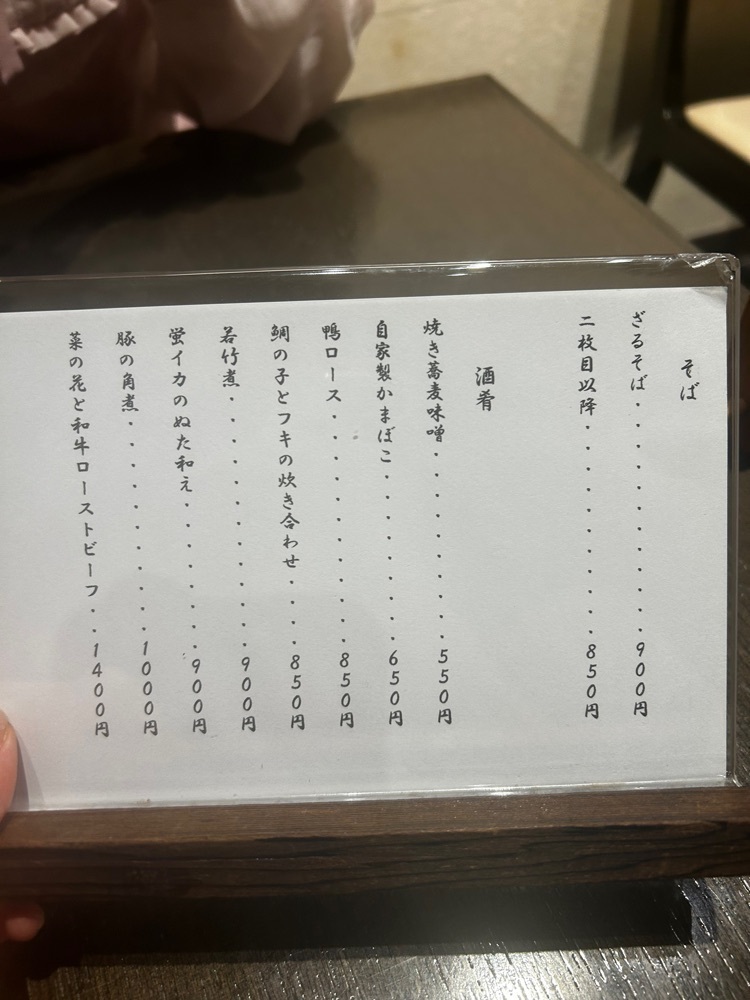 そば
ざるそば・・・・・・・・・・・・900円
二枚目以降・・・・・・・・・・・850円
酒肴
焼き蕎麦味噌・・・・・・・・・・550円
自家製かまぼこ・・・・・・・・・650円
鴨ロース・・・・・・・・・・・・850円
鯛の子とフキの炊き合わせ・・・・850円
若竹煮・・・・・・・・・・・・・900円
蛍イカのぬた和え・・・・・・・・900円
豚の角煮・・・・・・・・・・・・1000円
菜の花と和牛ローストビーフ・・1400円